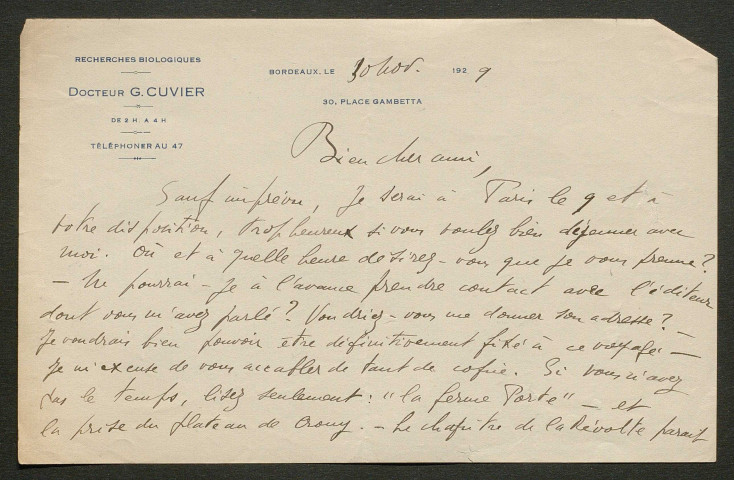 RECHERCHES BIOLOGIQUES
DOCTEUR G. CUVIER
DE 2 H. A 4 H
TÉLÉPHONER AU 47
BORDEAUX, LE 30 Nov. 1929
30, PLACE GAMBETTA
Bien cher ami,
Sauf imprévu, je serai à Paris le 9 et à
votre disposition, trop heureux si vous voulez bien déjeuner avec
moi. Où et à quelle heure désirez-vous que je vous prenne ?
— Ne pourrai-je à l'avance prendre contact avec l'éditeur
dont vous m'avez parlé ? Voudriez-vous me donner son adresse ? —
Je voudrais bien pouvoir etre définitivement fixé à ce voyage —
Je m'excuse de vous accabler de tant de copie. Si vous n'avez
pas le temps, lisez seulement : "la ferme Porte" — et
la prise du plateau de Crouy. — Le chapitre de la Révolte parait